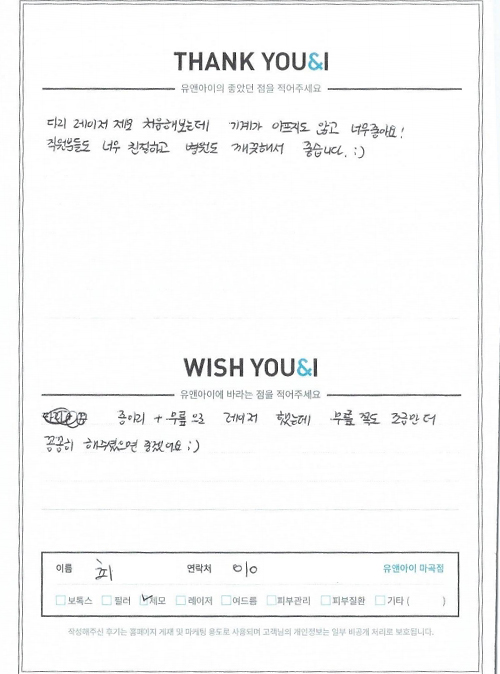 THANK YOU&I
유앤아이의 좋았던 점을 적어주세요
다리 레이저 제모 처음해보는데 기계가 아프지도 않고 너무좋아요!
직원분들도 너무 친절하고 병원도 깨끗해서 좋습니다. :)
WISH YOU&I
유앤아이에 바라는 점을 적어주세요
종아리 + 무릎으로 레이저 했는데 무릎 쪽도 조금만 더
꼼꼼히 해주셨으면 좋겠어요 ;)
이름 최 연락처 010 유앤아이 마곡점
보톡스 필러 제모 레이저 여드름 피부관리 피부질환 기타 ( )
작성해주신 후기는 홈페이지 게재 및 마케팅 용도로 사용되며 고객님의 개인정보는 일부 비공개 처리로 보호됩니다.